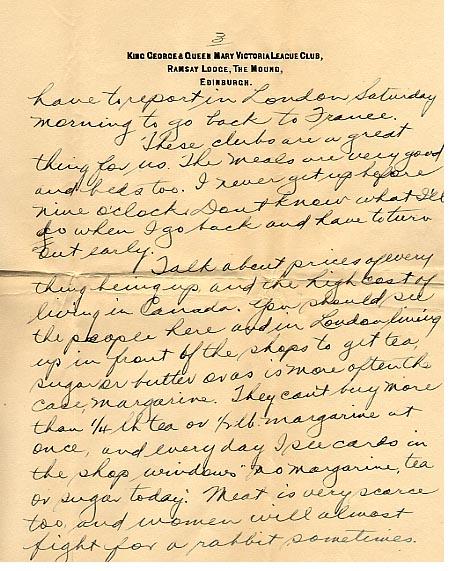 3
KING GEORGE & QUEEN MARY VICTORIA LEAGUE CLUB,
RAMSAY LODGE, THE MOUND,
EDINBURGH.
have to report in London Saturday
morning to go back to France.
These clubs are a great
thing for us. The meals are very good
and beds too. I never get up before
nine o'clock. Don't know what I'll
do when I go back and have to turn
out early.
Talk about prices of every
thing being up and the high cost of
living in Canada. You should see
the people here and in London lining
up in front of the shops to get tea,
sugar or butter or as is more often the
case, margarine. They can't buy more
than 1/4 lb tea or 1/2 lb. margarine at
once, and every day I see cards in
the shop windows "no margarine, tea
or sugar today." Meat is very scarce
too, and women will almost
fight for a rabbit sometimes.